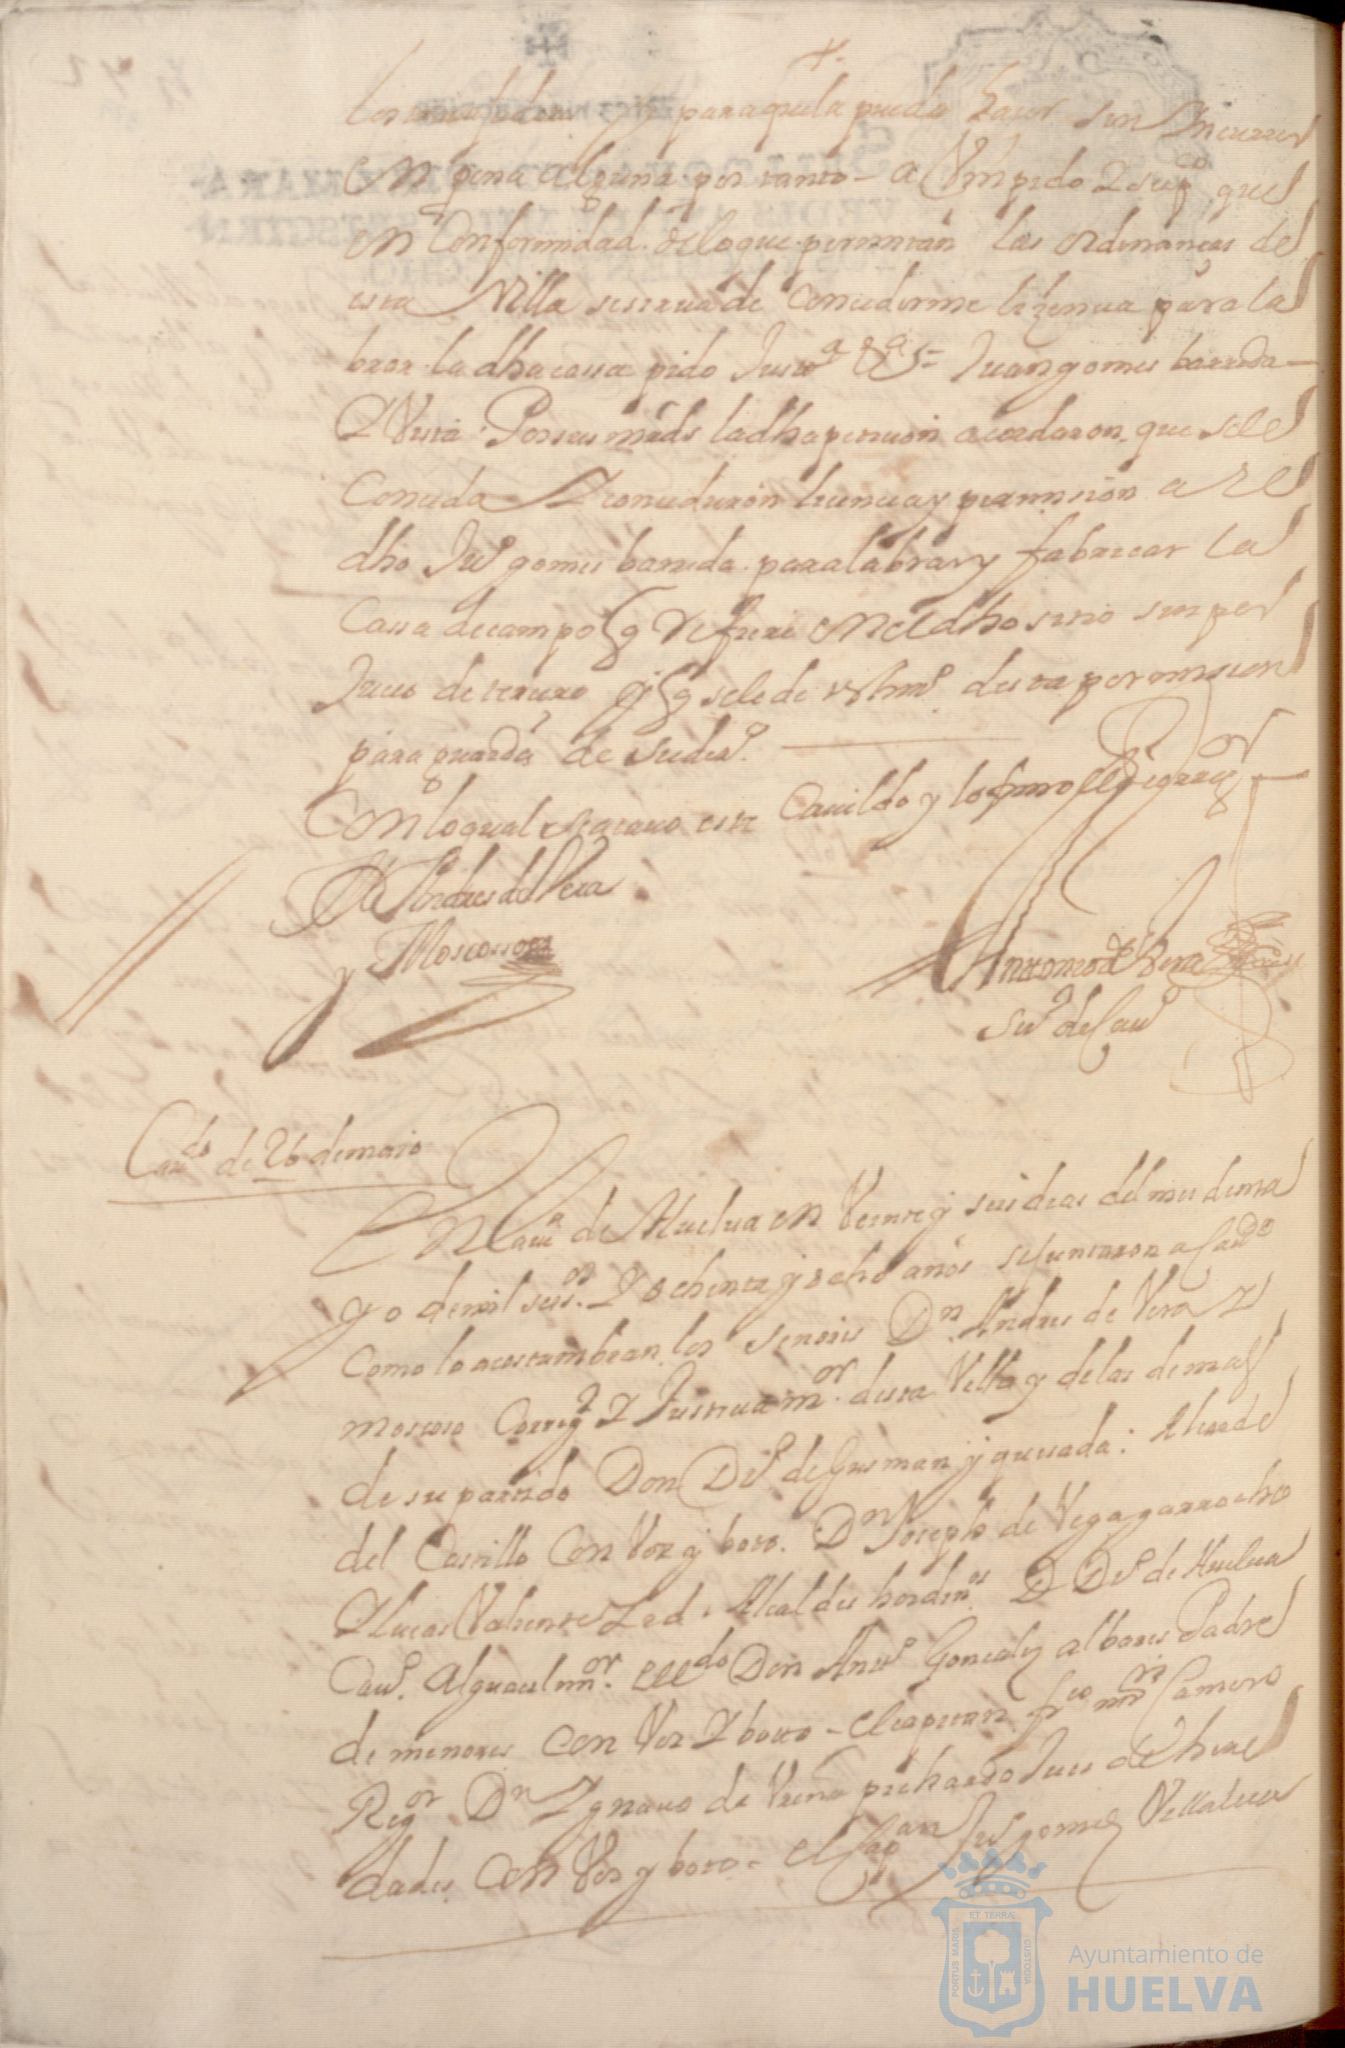 y para que la pueda hacer sin Yncurrir
en pena alguna por tanto - a Vm pido & supco que
en Conformidad de lo que permitan las ordenanças de
esta Villa se sirva de Concederme lizencia para la
brar la dha cassa pido Justa &a = Juan gomes barreda
Y Vista Por sus mrds la dha peticion acordaron que se le
Conceda Y concedieron licencia y permision a el
dho Juo gomes barreda para labrar y fabricar la
Cassa de campo q Refiere en el dho sitio sin per
Juicio de tercero y q se le de testimo desta permision
para guarda de su dro
Con lo qual se acavo este Cavildo y lo firmo el sr Corregor
Dn Andres de Vera
y Moscosso
Antonio de Vera
Sno de Cavo
Cavdo de 26 de maio
En la va de Huelva en Veinte y seis dias del mes de ma
yo de mil seisos Y ochenta y ocho años se juntaron a Cavdo
como lo acostumbran los Senores Dn Andres de Vera Y
moscoso Corregr Y Justicia mor desta Villa y de las demas
de su partido Don Do de Gusman y quesada: Alcaide
del Castillo Con Voz y boto. Dn Joseph de Vega garrocho
Y lucas Valiente Alcaldes hordinos D Do de Huelva
Cavo Alguacil mor el Ldo Don Anto Gonsales albares Padre
de menores con Voz Y botto - el capitan Fco mrn Camero
Regor Dn Ygnacio de pichardo Jues de here
dades Con Voz y boto - el Cappan Juo gomes Villalva
PORTUS MARIS ET TERRAE CUSTODIA
Ayuntamiento de
HUELVA